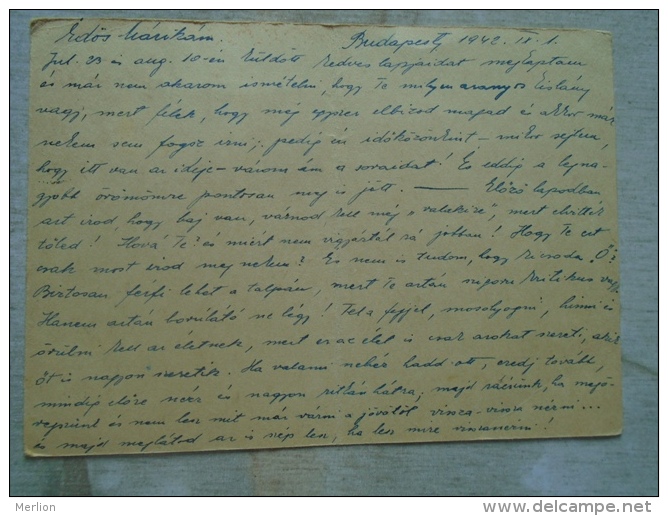 Édös Márikám. Budapest, 1942. IX. 1.
Jul. 23 és aug. 10-én küldött kedves lapjaidat megkaptam
és már nem akarom ismételni, hogy Te milyen aranyos kislány
vagy, mert félek, hogy még egyszer elbízod magad és akkor már
nekem sem fogsz írni, pedig én időközönként – mikor sejtem,
hogy itt van az ideje – várom ám a soraidat! És eddig a legna-
gyobb örömömre pontosan meg is jött. — Előző lapodban
azt írod, hogy baj van, várnod kell még a "valakire", mert elvitték
tőled! Hová Te? és miért nem vigyáztál rá jobban! Hogy Te ezt
csak most írod meg nekem? És nem is tudom, hogy kicsoda "Ő"?
Biztosan férfi lehet a talpán, mert Te aztán szigorú kritikus vagy
Hanem aztán borúlátó ne légy! Fel a fejjel, mosolyogni, hinni és
örülni kell az életnek, mert ez az élet is csak azokat szereti, akik
őt is nagyon szeretik. Ha valami nehéz hadd ott, eredj tovább,
mindig előre nézz és nagyon ritkán hátra, majd ráérünk, ha majd
végzünk és nem lesz mit már várni a jövőtől vissza-vissza nézni...
és majd meglátod az is szép lesz, ha lesz mire visszanézni!
Merlion
www.delcampe.net